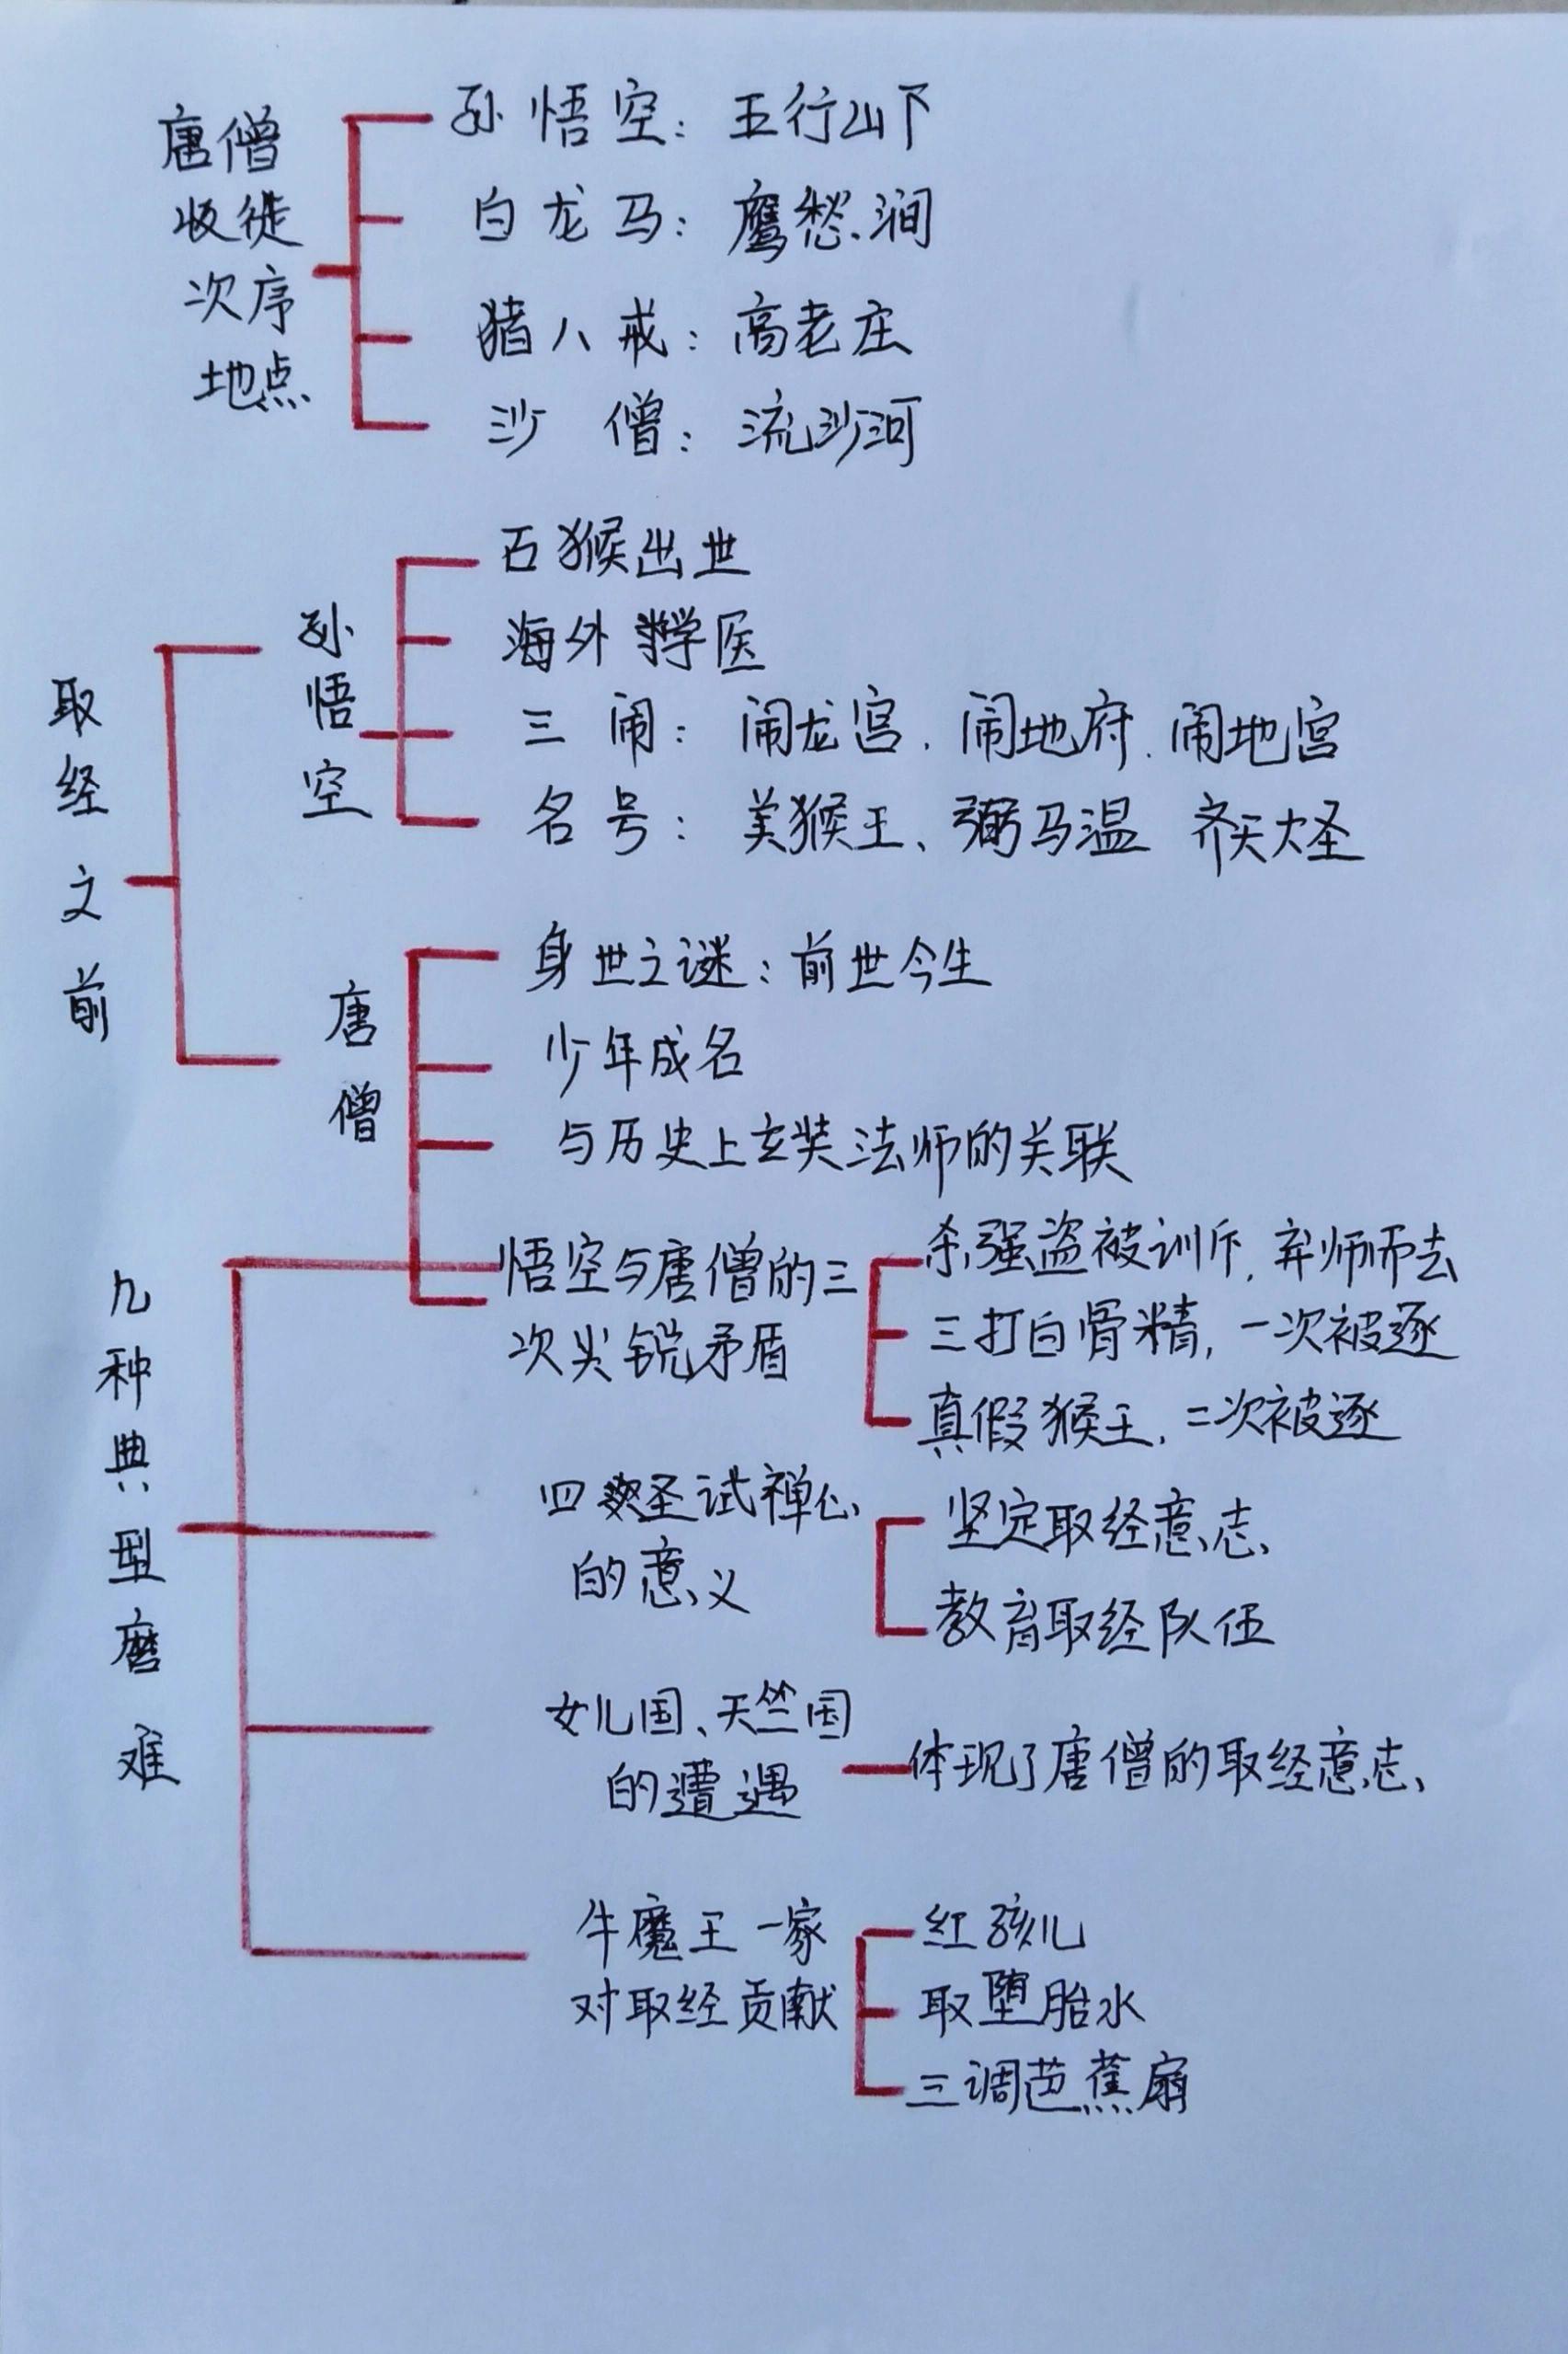 唐僧
收徒
次序
地点
孙悟空：五行山下
白龙马：鹰愁涧
猪八戒：高老庄
沙僧：流沙河
取经之前
孙悟空
石猴出世
海外学医
三闹：闹龙宫、闹地府、闹地宫
名号：美猴王、弼马温 齐天大圣
唐僧
身世之谜：前世今生
少年成名
与历史上玄奘法师的关联
几种典型磨难
悟空与唐僧的三
次尖锐矛盾
杀强盗被训斥，弃师而去
三打白骨精，一次被逐
真假猴王，二次被逐
四圣试禅心
的意义
坚定取经意志
教育取经队伍
女儿国、天竺国
的遭遇
体现了唐僧的取经意志
牛魔王一家
对取经贡献
红孩儿
取堕胎水
三调芭蕉扇